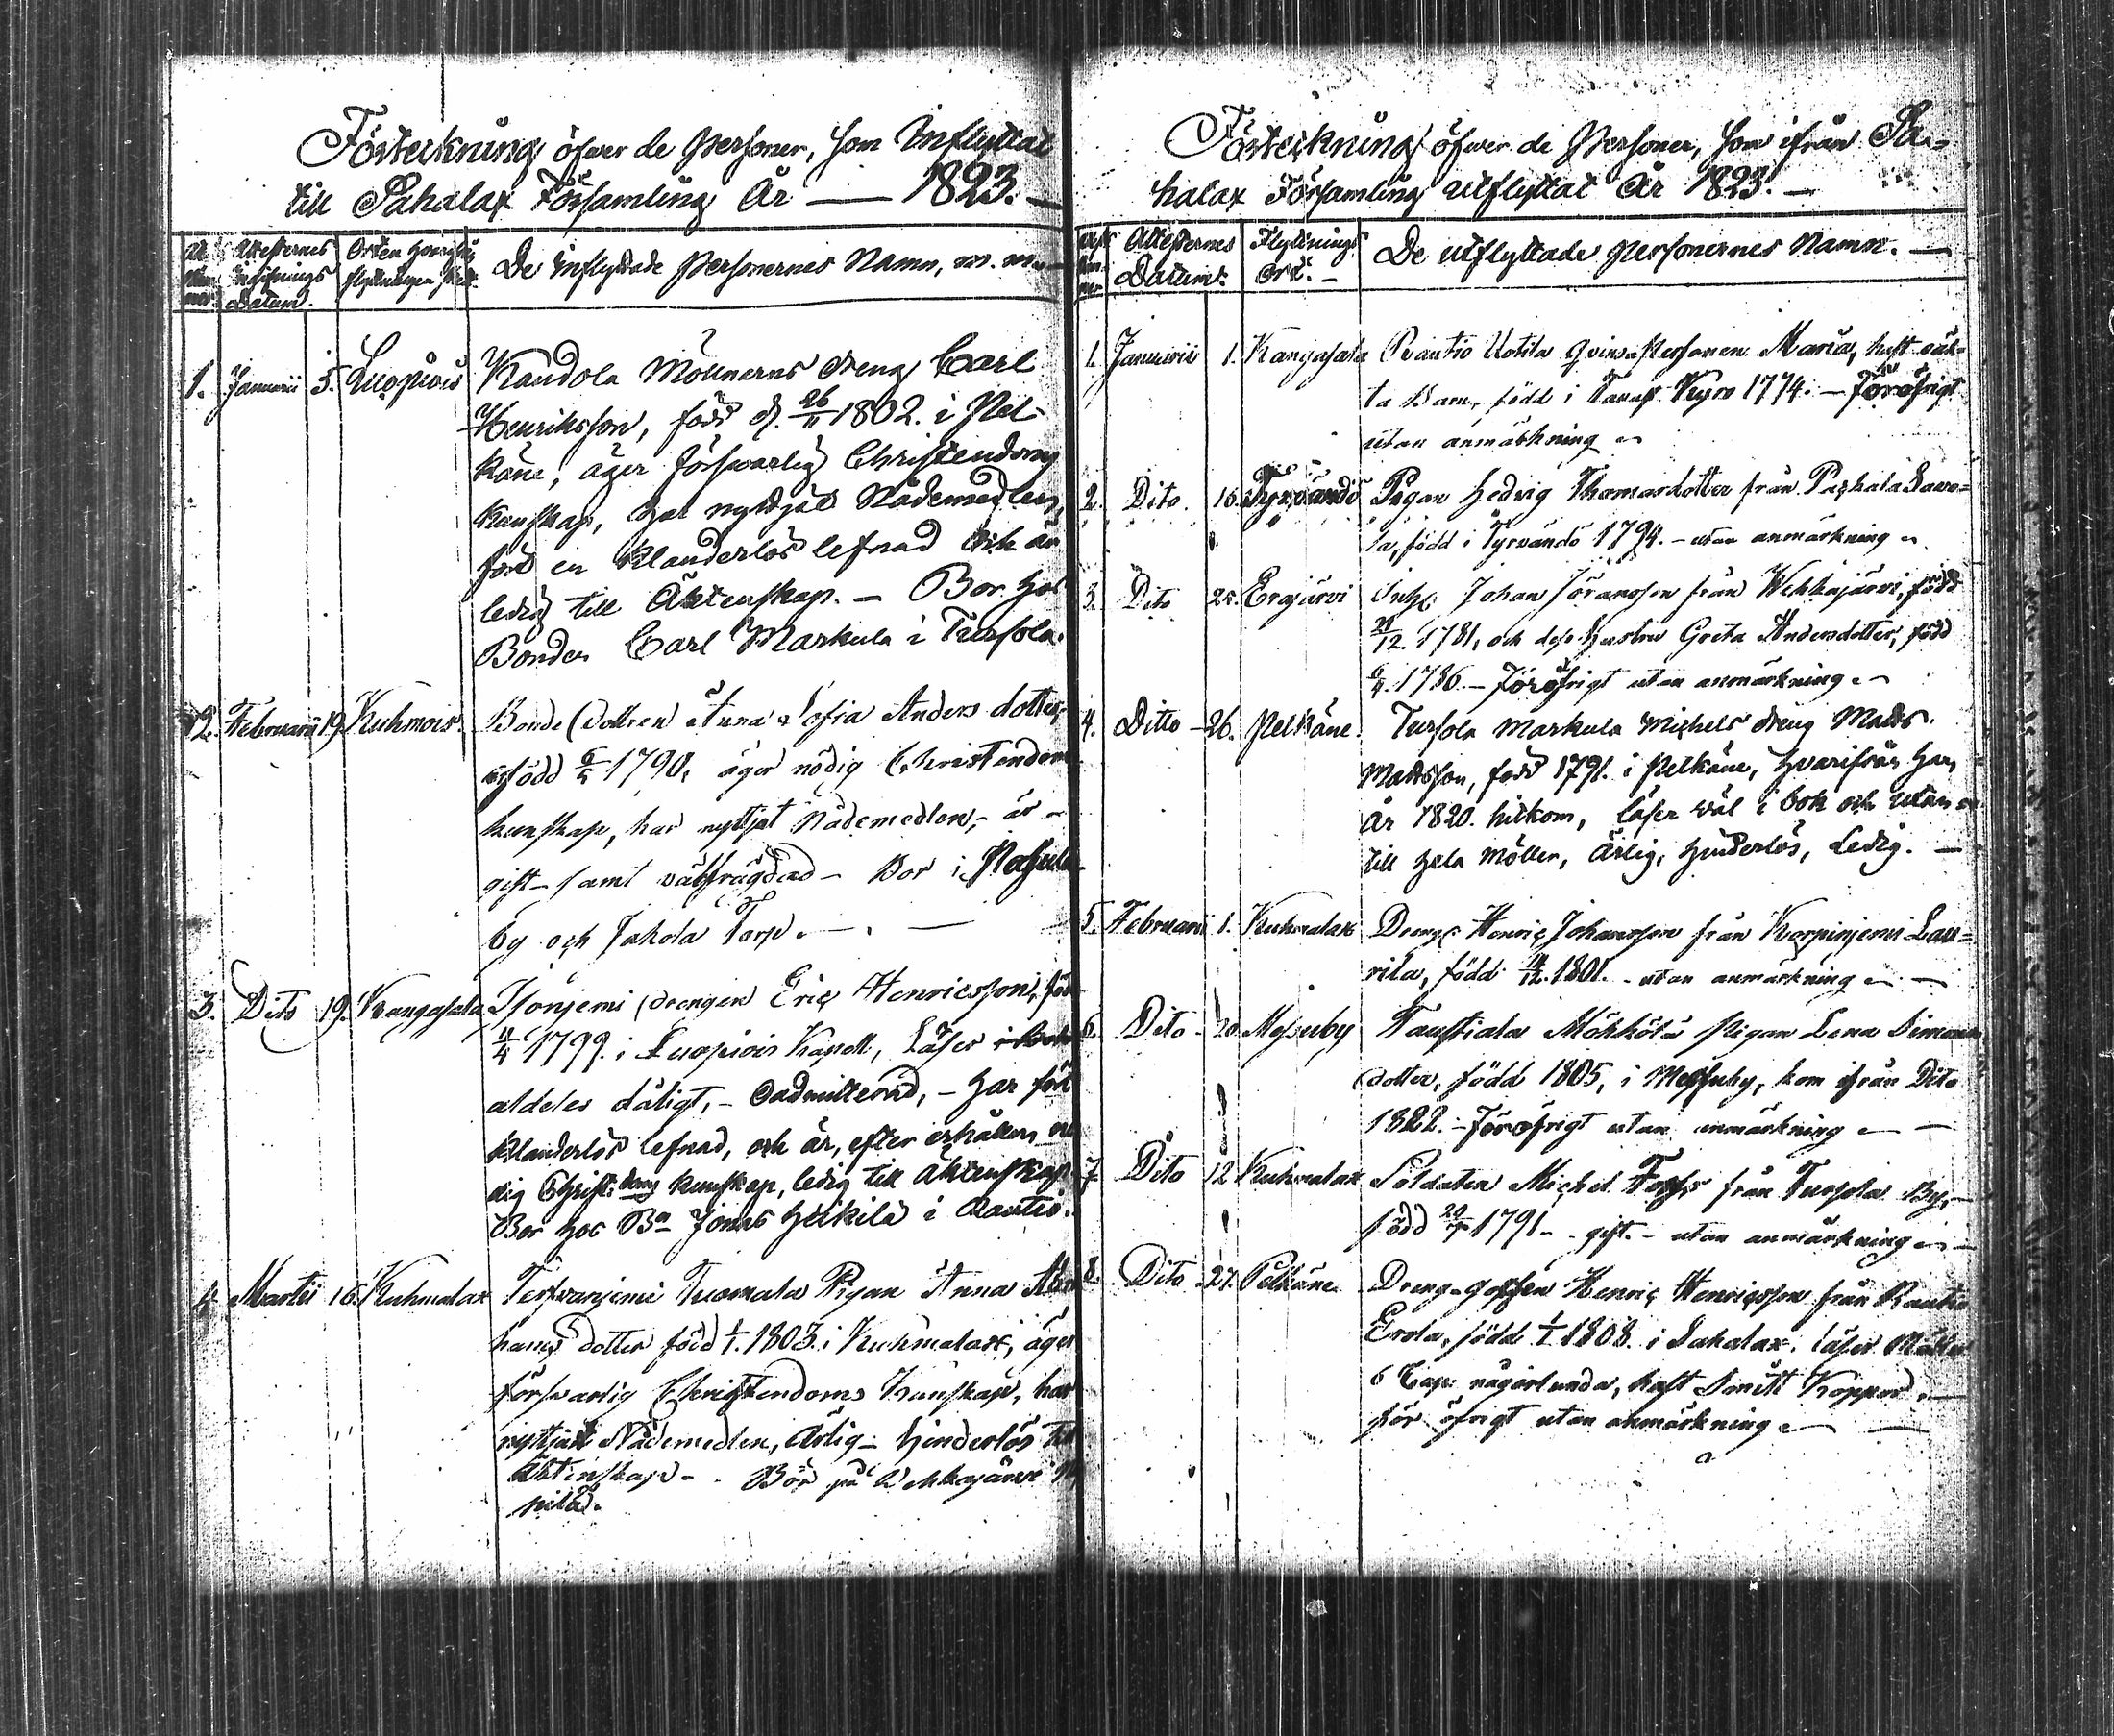 Förteckning öfwer de Personer, som Inflyttat
till Sahalax Församling År — 1823. —
Attesternes
Ingifnings
Datum.
Orten hvarifrån
flyttningen sked.
De inflyttade Personernes Namn, m. m. —
1. Januarii 5. Luopiois Kandola Möllnerns dreng Carl
Henriksson, född d. 26/11 1802. i Pel-
käne, äger försvarlig Christendoms
kunskap, har nyttjat Nådemedlen,
fört en klanderlös lefnad och är
ledig till Äktenskap. — Bor hos
Bonden Carl Markula i Tursola.
2. Februarii 19. Kuhmois. Bonde Dottren Anna Sofia Anders dotter,
född 1790, äger nödig Christendoms
kunskap, har nyttjat Nådemedlen, är
gift — samt välfrägdad — Bor i
by och Jakola Torp. —
3. Dito 19. Kangasala Isoniemi drengen Eric Henricsson, född
11/4 1799. i Luopiois Kapell, Läser i bok
aldeles dåligt, — admitterad, — har fört
klanderlös lefnad, och är, efter erhållen nö
dig Christ: doms kunskap, ledig till Äktenskap.
Bor hos Bn Jonas Heikilä i Rautio.
4. Martii 16. Kuhmalax Tervaniemi Tuomala Pigan Anna Abra
hams dotter född 1/1. 1803. i Kuhmalax, äger
försvarlig Christendoms Kunskap, har
nyttjat Nådemedlen, Ärlig — hinderlös till
Äktenskap — Bor på Vehkajärvi
pilä.
Förteckning öfwer de Personer, som ifrån Sa-
halax Församling utflyttat År 1823. —
Attesternes
Datum.
Flyttnings
Ort. —
De utflyttade Personernes Namn. —
1. Januarii 1. Kangasala Rautio Uotila Qvinspersonen Maria, haft oäk-
ta Barn, född i Tavast Kyro 1774. — Föröfrigt
utan anmärkning
2. Dito. 16. Tyrvändö Pigan Hedvig Thomasdotter från Pakkala Sawo-
la, född i Tyrvändö 1794. — utan anmärkning
3. Dito Erajärvi Inh: Johan Jöransson från Wehkajärvi, född
21/12. 1781, och dess hustru Greta Andersdotter, född
1786. — Föröfrigt utan anmärkning
4. Ditto 26. Pelkäne. Tursola Markula Michels dreng Matts
Mattsson, född 1791. i Pelkäne, hvarifrån han
År 1820. hitkom, läser väl i bok och utan
till hela Möller, Ärlig, hinderlös, Ledig. —
5. Februarii 1. Kuhmalax Dreng: Henric Johansson från Korpiniemi Lau-
rila, född 1801. — utan anmärkning —
6. Dito 20. Messuby Taustiala Mökkölä Pigan Lena Simons
dotter, född 1805, i Messuby, kom ifrån Dito
1822. — Föröfrigt utan anmärkning —
7. Dito 12 Kuhmalax Soldaten Michel från Tursola By,
född 1791 — gift. — utan anmärkning —
8. Dito 27. Pelkäne Dreng-gossen Henric Henricsson från Rautio
Erola, född 1/1 1808. i Sahalax. läser Möller
6 Cap: någorlunda, haft Smitt Koppor, —
för öfrigt utan anmärkning —